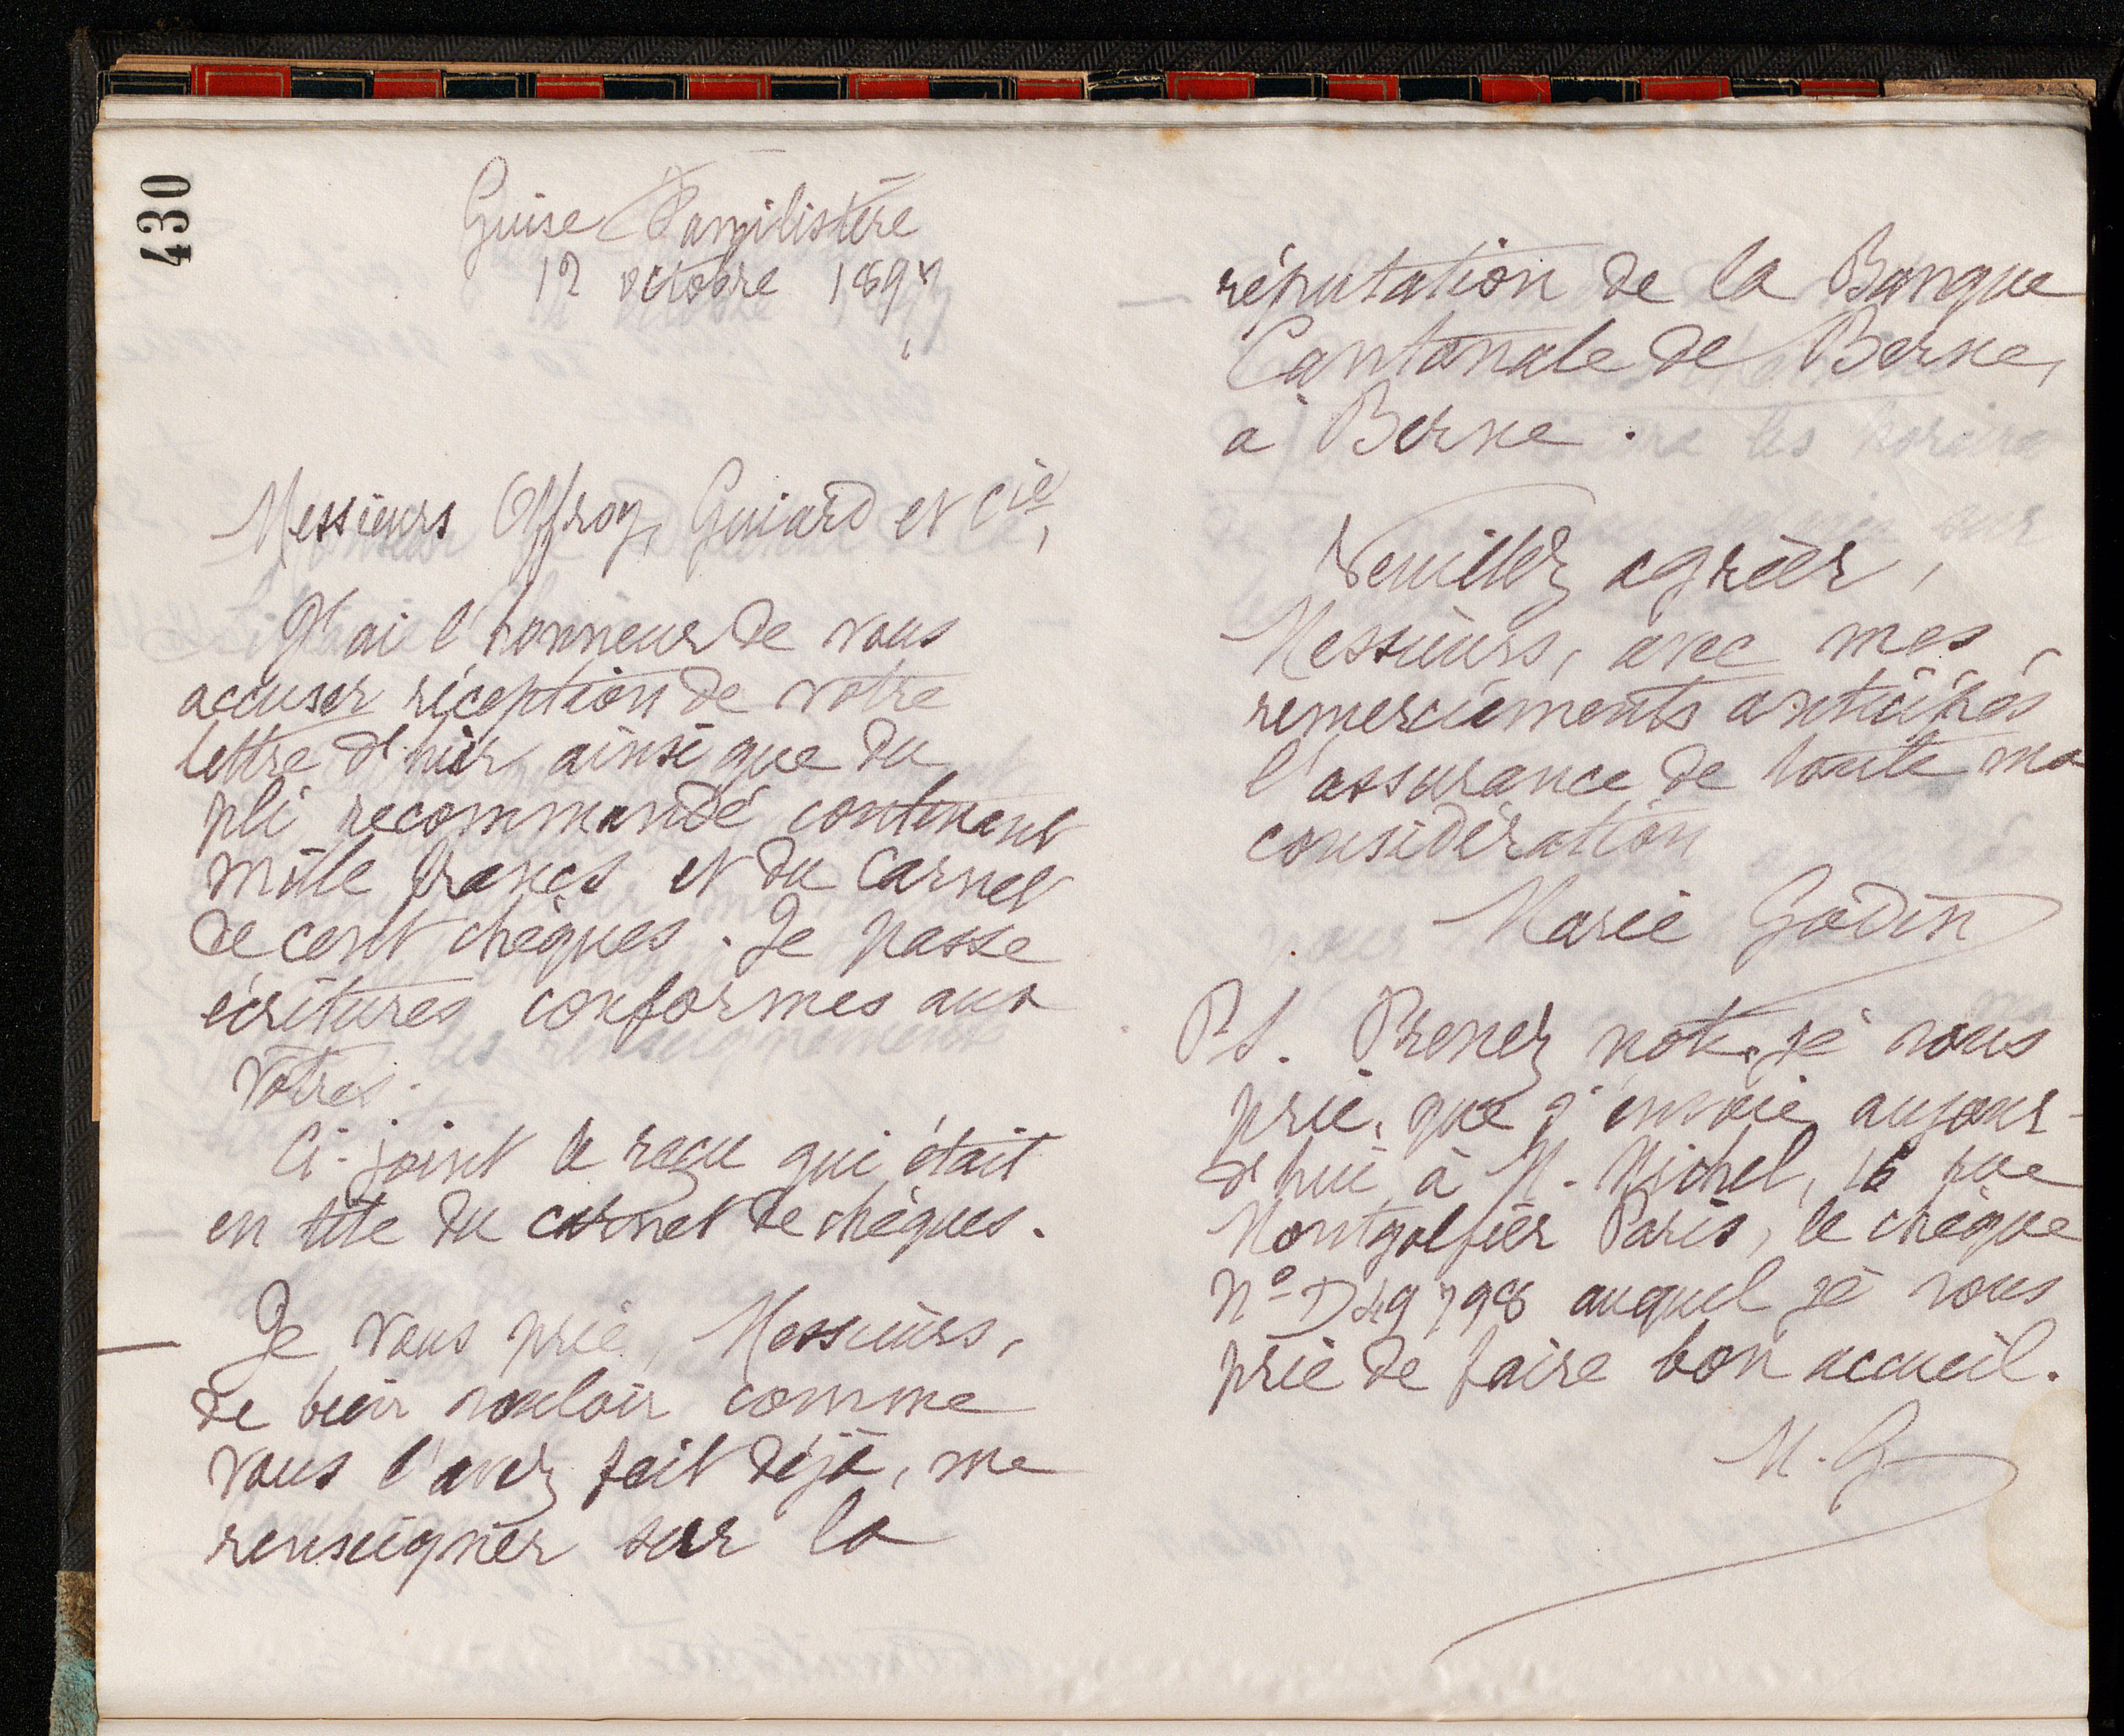 430
Guise Familistère
12 octobre 1897
Messieurs Offroy, Guiard et Cie,
J'ai l'honneur de vous
accuser réception de votre
lettre d'hier ainsi que du
pli recommandé contenant
mille francs et du carnet
de cent chèques. Je passe
écritures conformes aux
vôtres.
Ci-joint le reçu qui était
en tête du carnet de chèques.
Je vous prie, Messieurs,
de bien vouloir comme
vous l'avez fait déjà, me
renseigner sur la
réputation de la Banque
Cantonale de Berne,
à Berne.
Veuillez agréer,
Messieurs, avec mes
remerciements anticipés
l'assurance de toute ma
considération
Marie Godin
PS. Prenez note, je vous
prie, que j'envoie aujour-
d'hui à M. Michel, 16 rue
Montgolfier Paris, le chèque
No D49798 auquel je vous
prie de faire bon accueil.
M. G